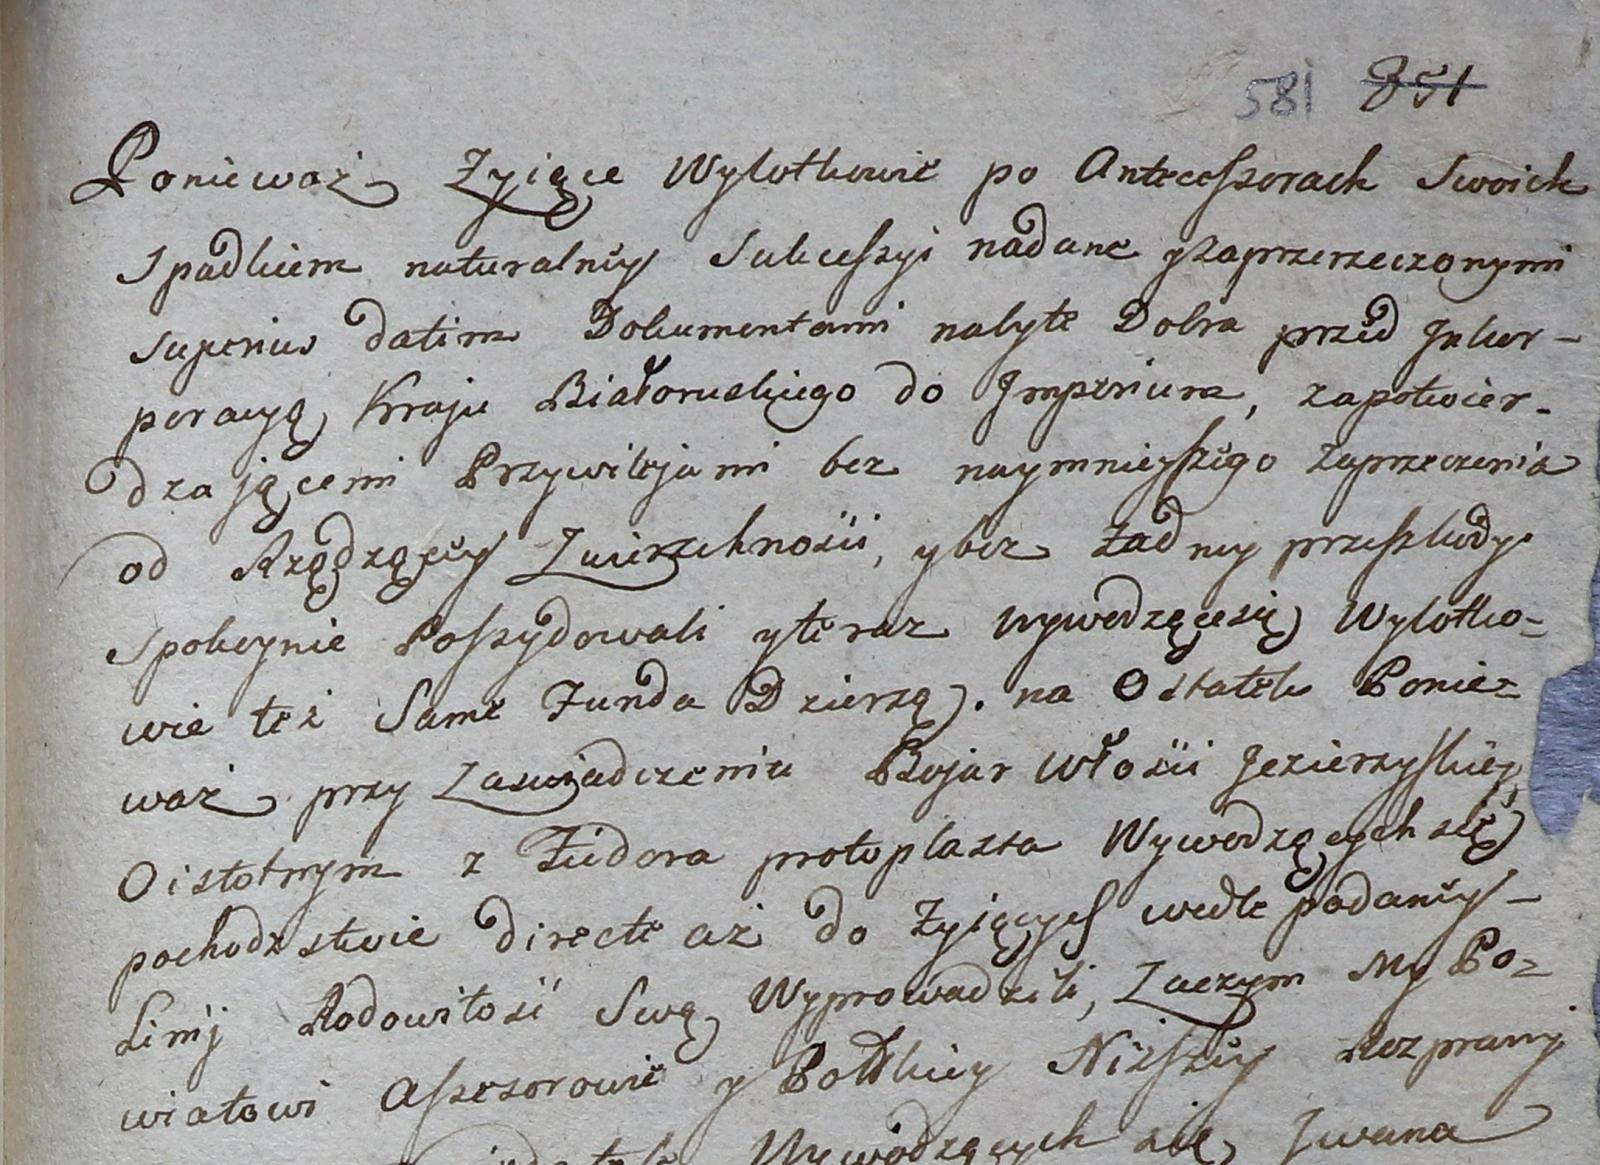 581 351
Ponieważ Zyiące Wylotkowie po Antecessorach Swoich
Spadkiem naturalney Sukcessyi nadane y zaprzerzeczonymi
superius datim Dokumentami nabyte Dobra przed Inkor-
poracyą Kraju Białoruskiego do Imperium, za potwier-
dzającemi Przywilejami bez naymnieyszego Zaprzeczenia
od Rządzącey Zwierzchności, y bez żadney przeszkody
Spokoynie Possydowali y teraz wywodzące się Wylotko-
wie też Same Funda Dzierzą. na Ostatek Ponie-
waż przy Zaswiadczeniu Bojar Włosci Jezierzyskiey
O istotnym z Fiedora protoplasta Wywodzących się
pochodzstwie directe aż do Zyiących wedle podaney
Linij Rodowitość Swą Wyprowadzili, Zaczym My Po-
wiatowi Assesorowie y Połłkiey Niższey Rozprawy
Wywodzących się Iwana